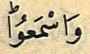 وَاسْمَعُوْا